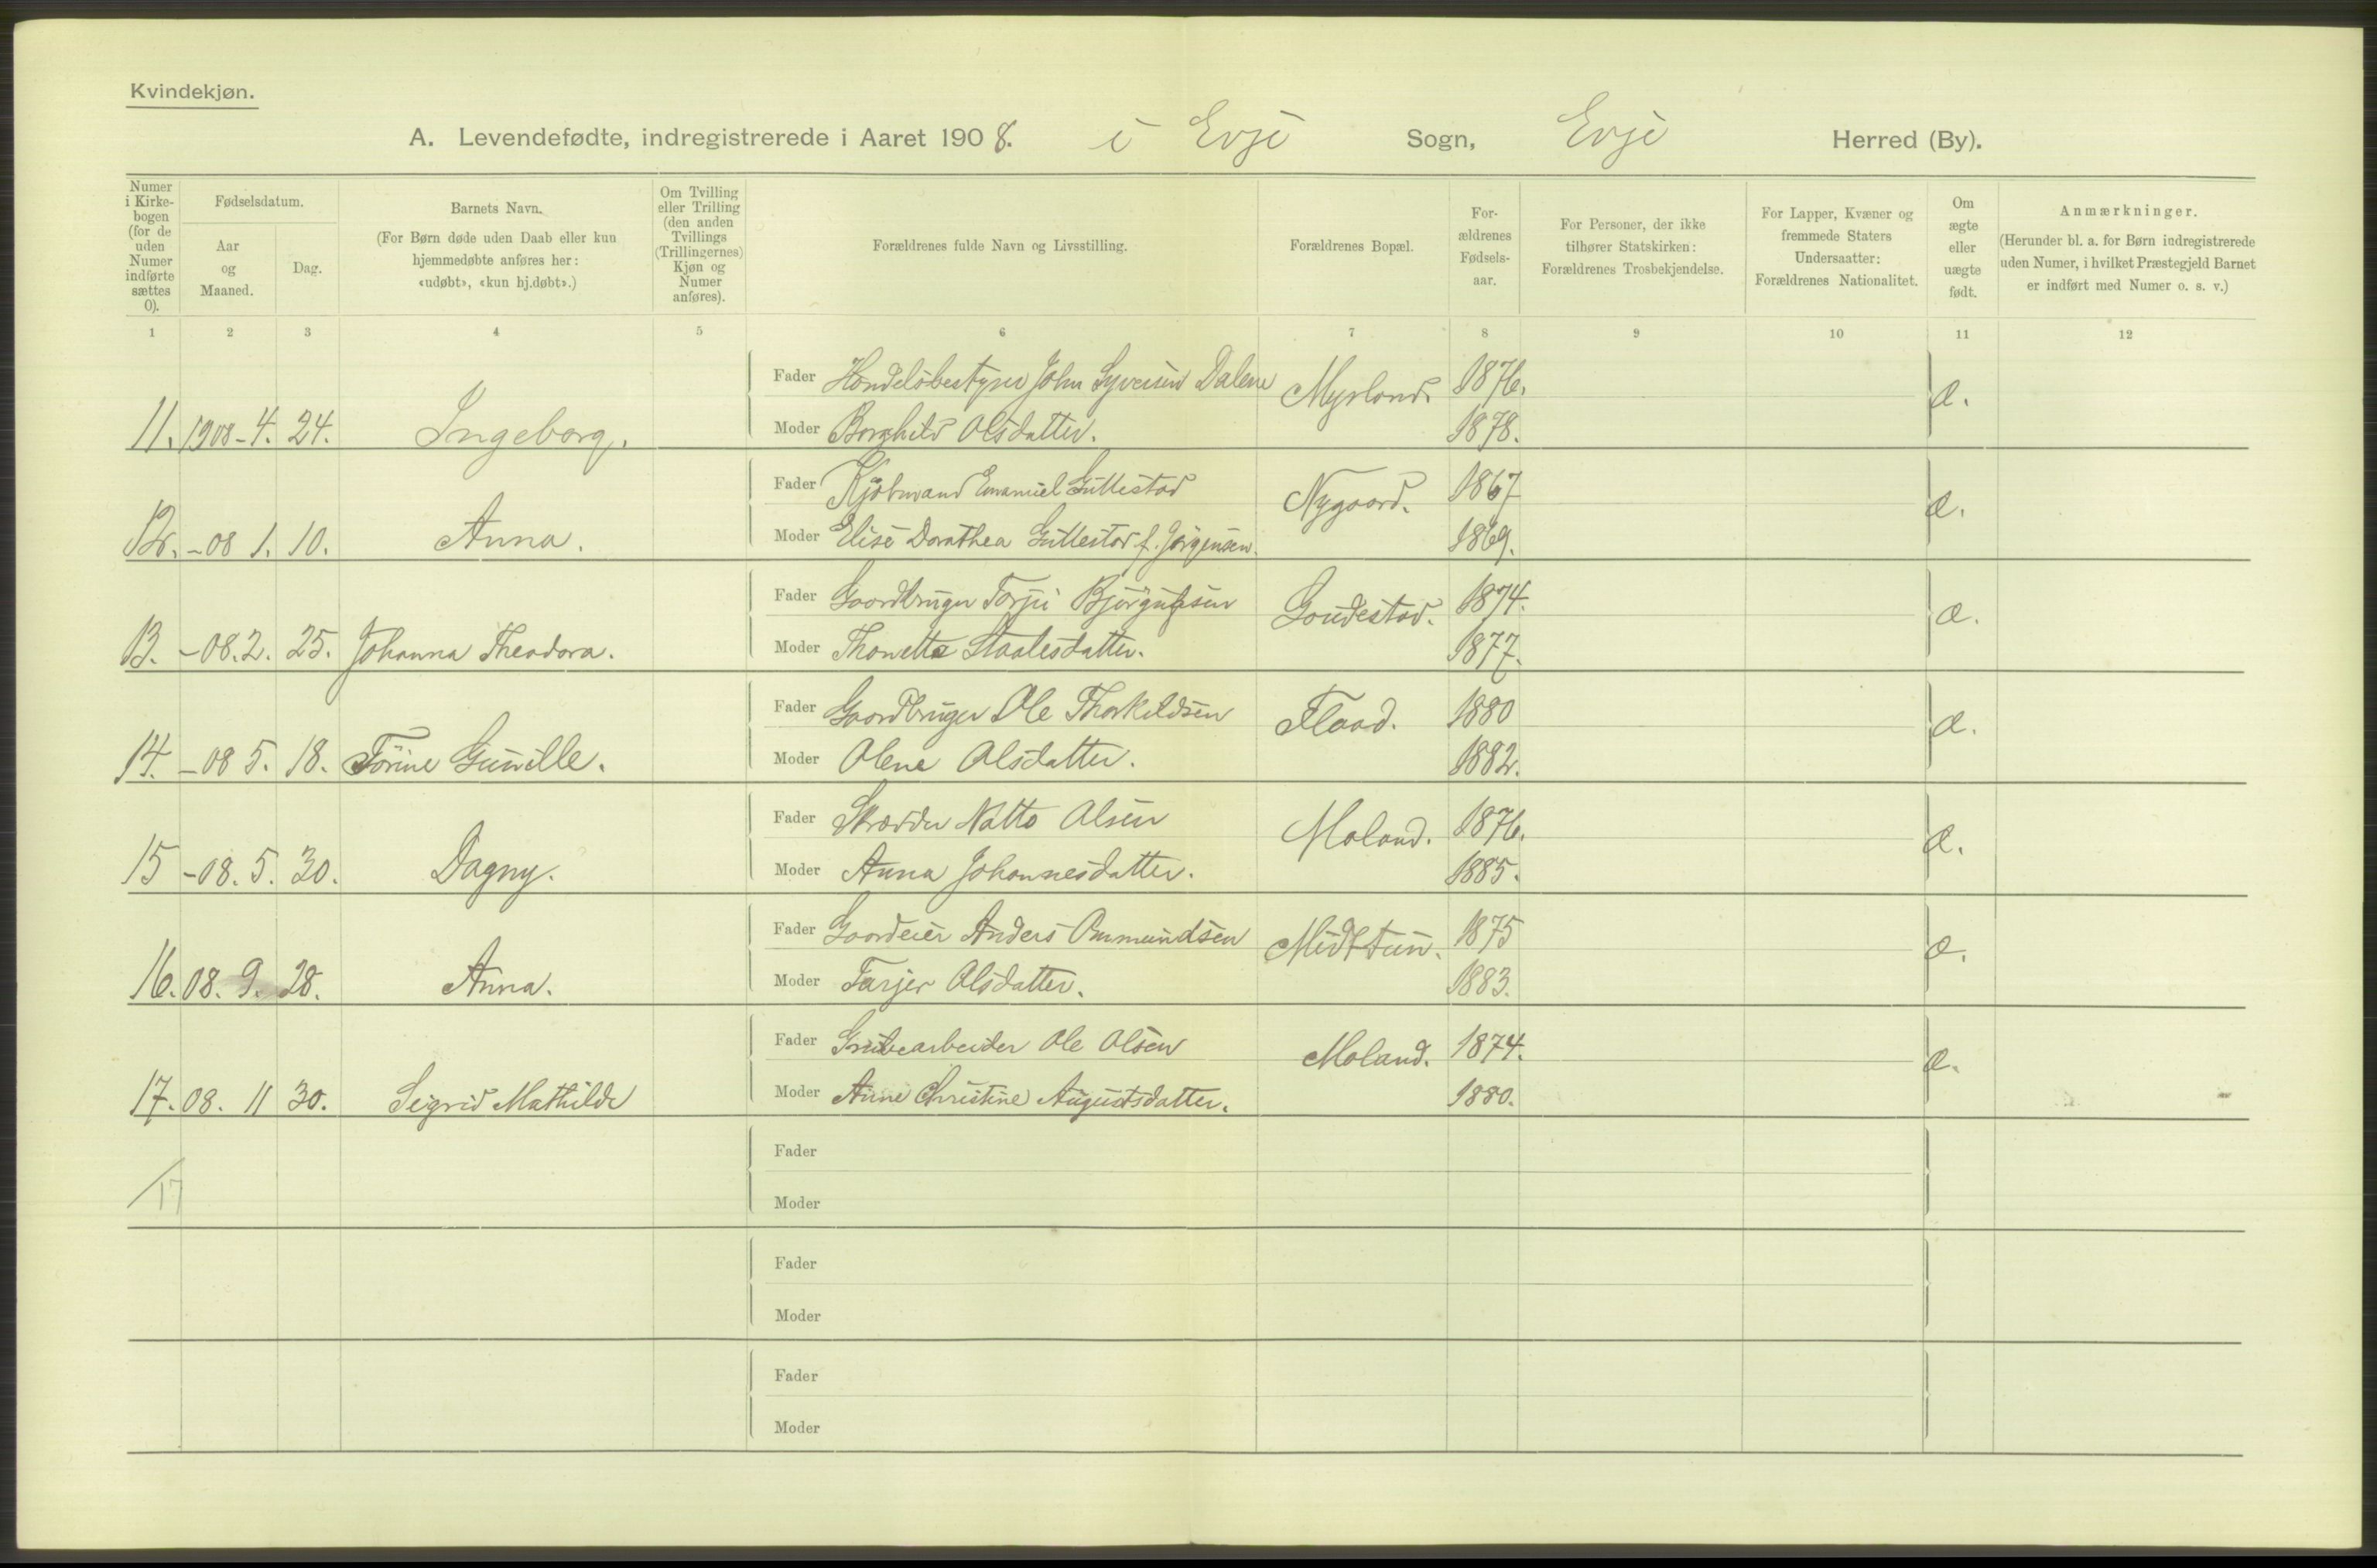 Kvindekjøn.
A. Levendefødte, indregistrerede i Aaret 1908. i Evje Sogn, Evje Herred (By).
Numer i Kirkebogen (for de uden Numer indførte sættes 0).
Fødselsdatum.
Aar og Maaned.
Dag.
Barnets Navn.
(For Børn døde uden Daab eller kun hjemmedøbte anføres her: «udøbt», «kun hj.døbt».)
Om Tvilling eller Trilling (den anden Tvillings (Trillingernes) Kjøn og Numer anføres).
Forældrenes fulde Navn og Livsstilling.
Forældrenes Bopæl.
Forældrenes Fødselsaar.
For Personer, der ikke tilhører Statskirken: Forældrenes Trosbekjendelse.
For Lapper, Kvæner og fremmede Staters Undersaatter: Forældrenes Nationalitet.
Om ægte eller uægte født.
Anmærkninger.
(Herunder bl. a. for Børn indregistrerede uden Numer, i hvilket Præstegjeld Barnet er indført med Numer o. s. v.)
1 2 3 4 5 6 7 8 9 10 11 12
Fader Handelsbestyrer John Syversen Dalene Myrland. 1876. æ.
11. 1908-4. 24. Ingeborg. Moder Borghild Olsdatter. 1878.
Fader Kjøbmand Emanuel Gullestad Nygaard. 1867 æ.
12. -08 1. 10. Anna. Moder Elise Dorathea Gullestad f. Jørgensen. 1869.
Fader Gaardbruger Torjei Bjørgufsen Gaudestad. 1874. æ.
13. -08. 2. 25. Johanna Theodora. Moder Thonette Staalesdatter. 1877.
Fader Gaardbruger Ole Thorkildsen Flaad. 1880 æ.
14. -08 5. 18. Tørine Gunille. Moder Olene Olsdatter. 1882.
Fader Skrædder Natto Olsen Moland. 1876. æ.
15 -08. 5. 30. Dagny. Moder Anna Johannesdatter. 1885.
Fader Gaardeier Anders Ommundsen Midttun. 1875 æ.
16. 08. 9. 28. Anna. Moder Tarjer Olsdatter. 1883.
Fader Grubearbeider Ole Olsen Moland. 1874. æ.
17. 08. 11 30. Sigrid Mathilde Moder Anne Christine Augustsdatter. 1880.
Fader
/17
Moder
Fader
Moder
Fader
Moder